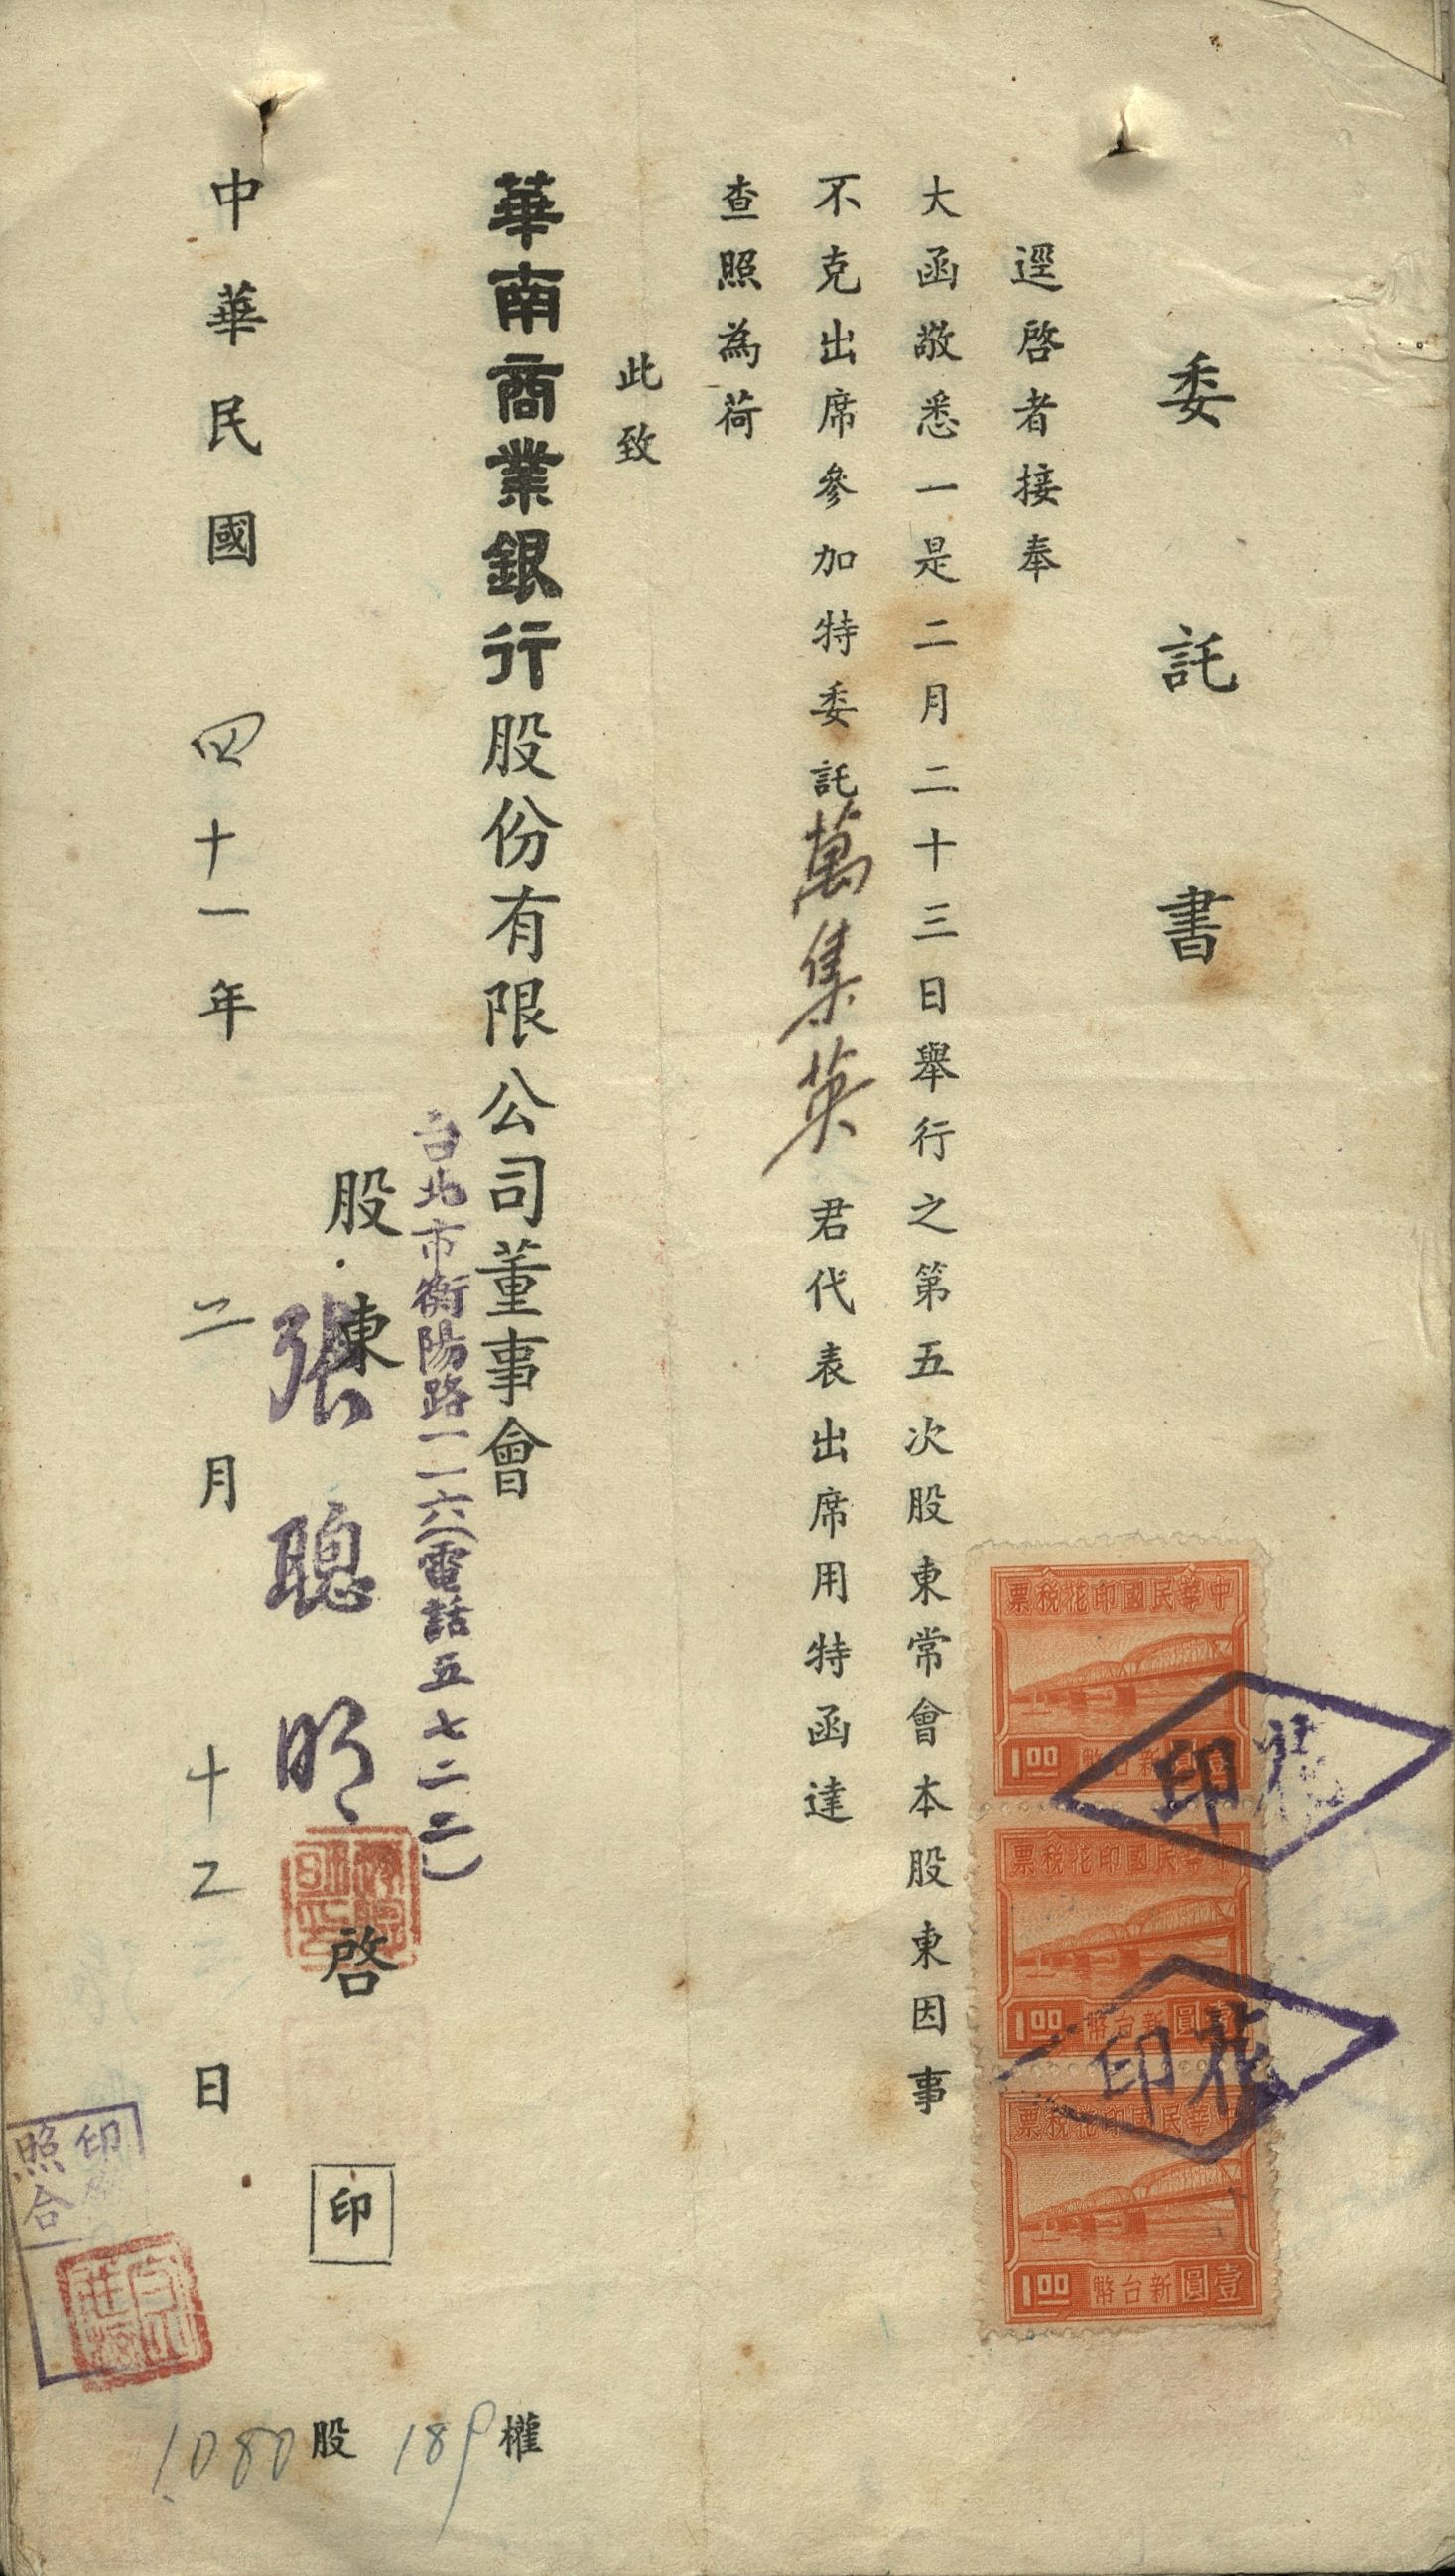 委託書
逕啓者接奉
大函敬悉一是二月二十三日舉行之第五次股東常會本股東因事
不克出席參加特委託萬集英君代表出席用特函達
查照為荷
此致
華南商業銀行股份有限公司董事會
台北市衡陽路一一六(電話五七二二)
股東張聰明啓
印
中華民國四十一年二月十乙日
1080股 189權
中華民國印花稅票
1.00 新台幣壹圓
中華民國印花稅票
1.00 新台幣壹圓
中華民國印花稅票
1.00 新台幣壹圓
花印
花印
印
照合